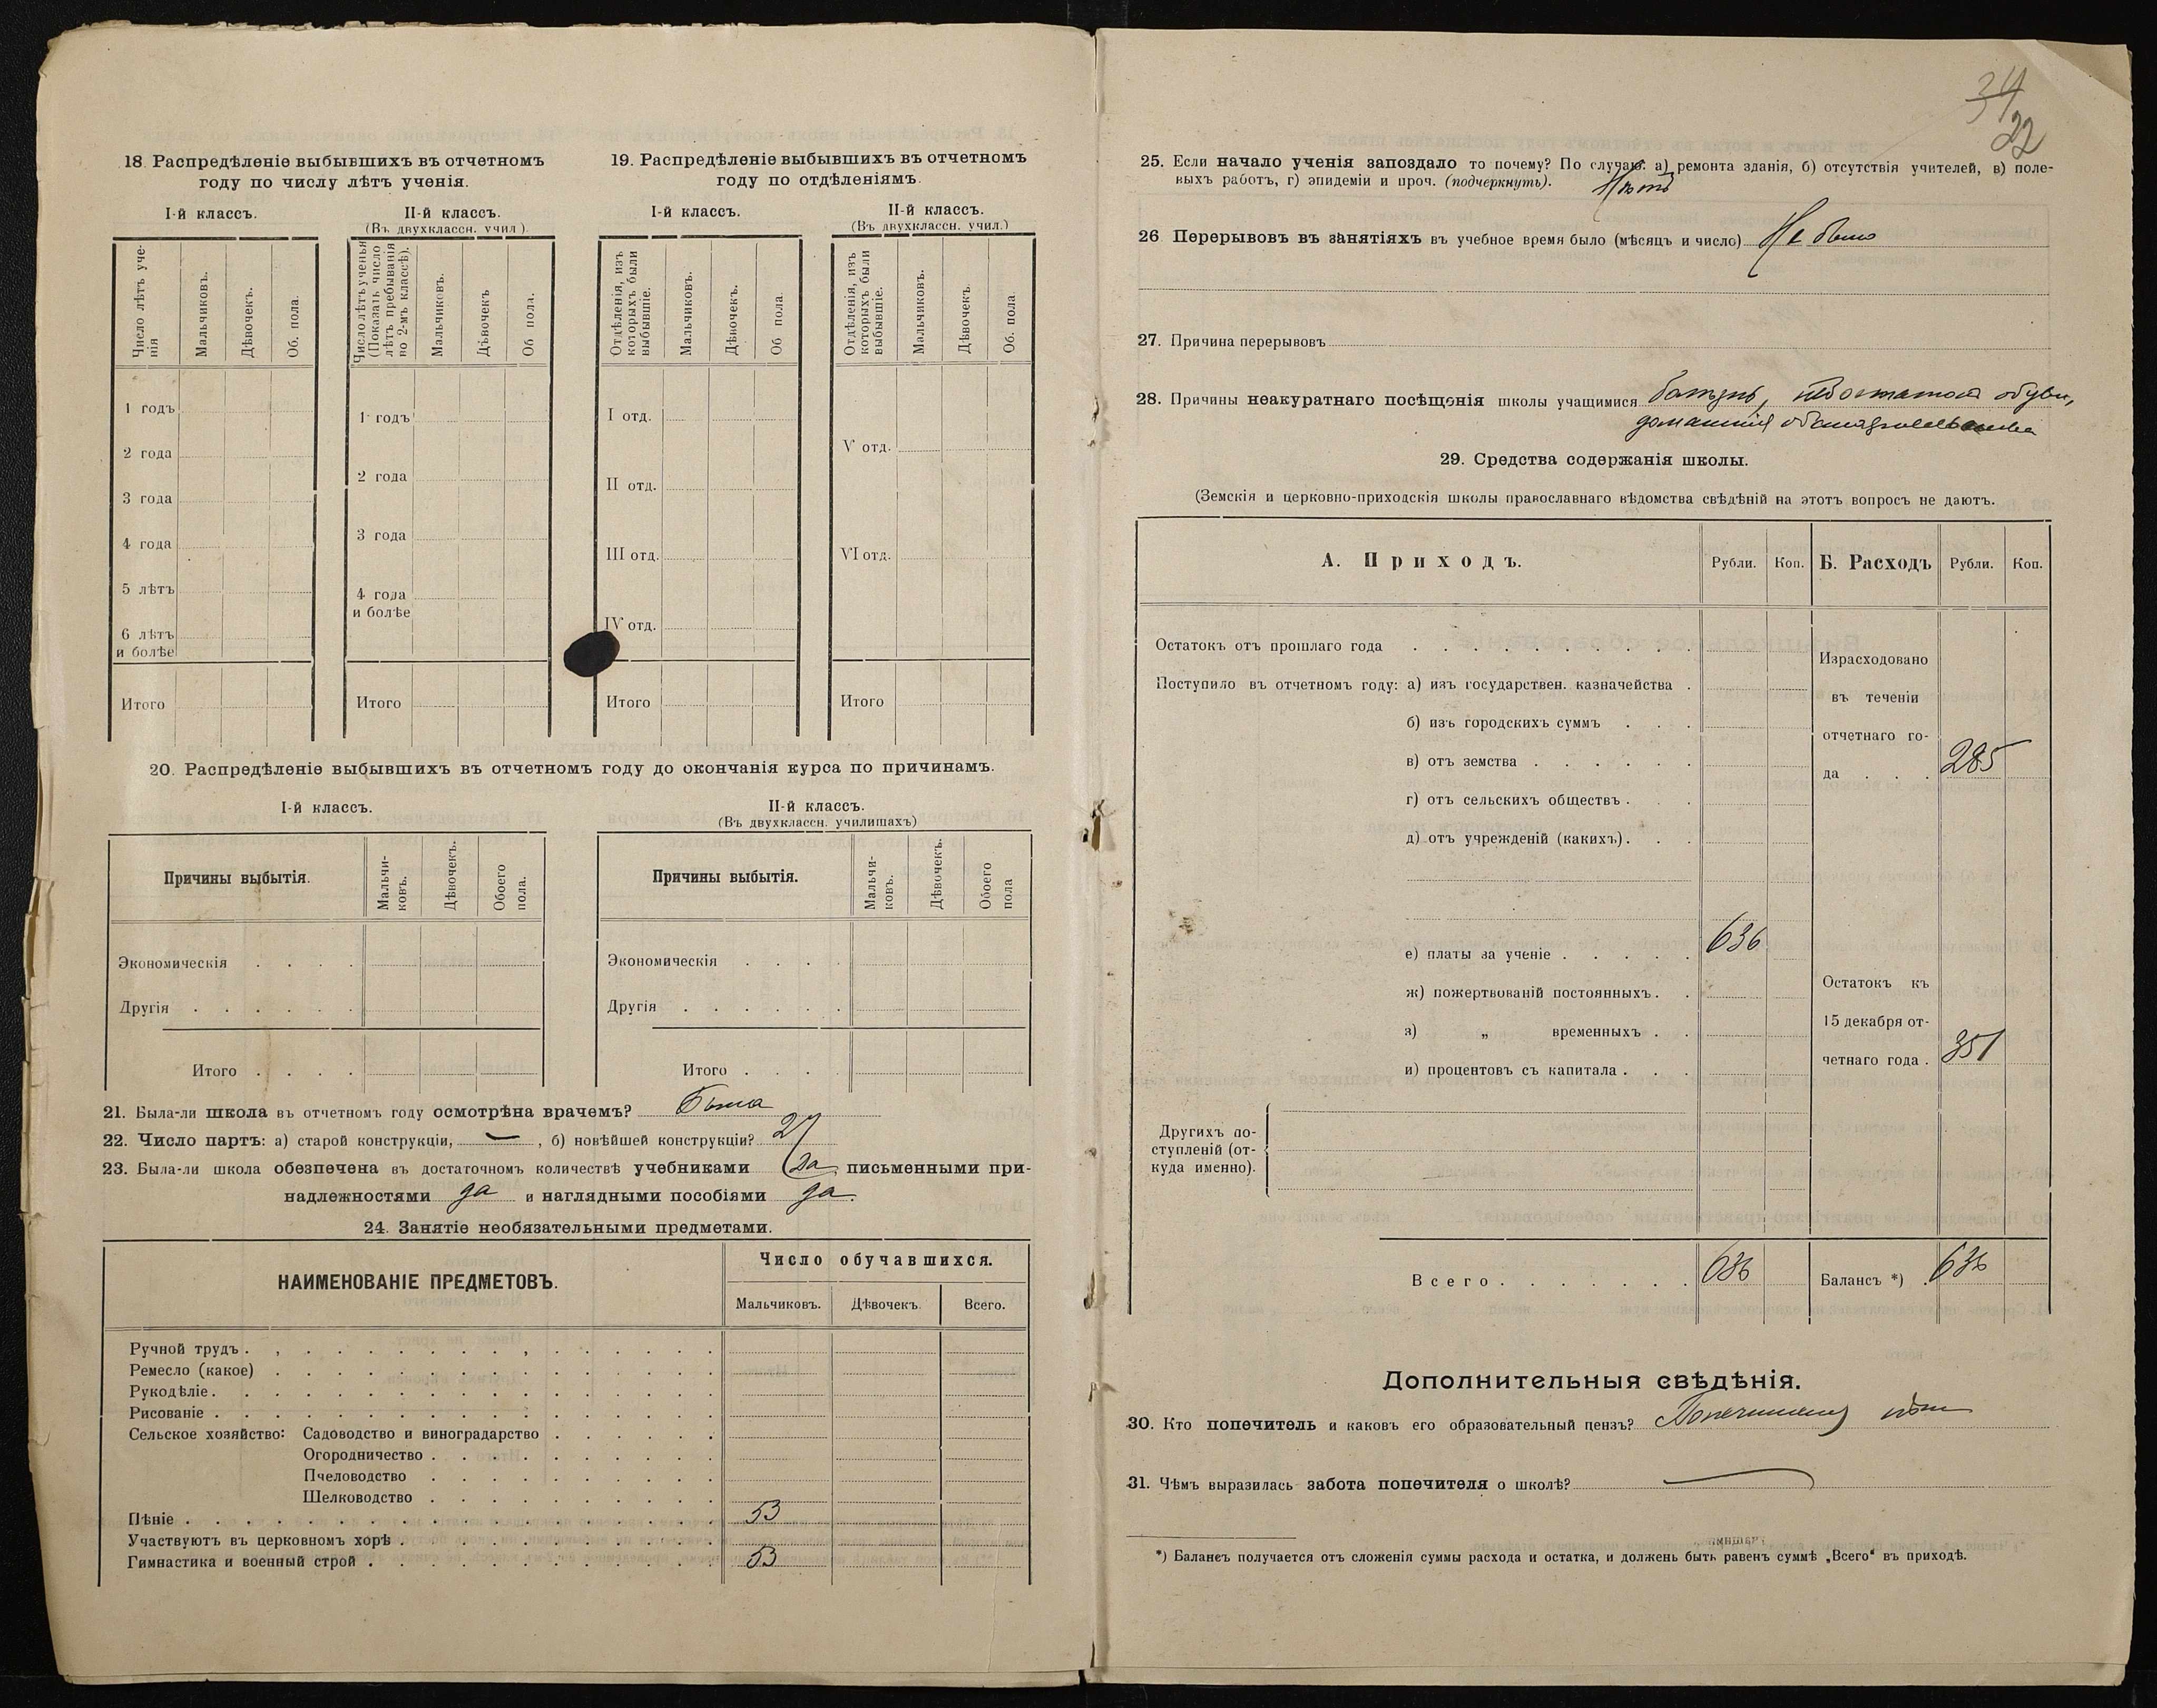 18. Распредѣленіе выбывшихъ въ отчетномъ
году по числу лѣтъ ученія.
I-й классъ.
II-й классъ.
(Въ двухклассн. учил.)
Число лѣтъ уче-
нія
Мальчиковъ.
Дѣвочекъ.
Об. пола.
Число лѣтъ ученья
(Показать число
лѣтъ пребыванія
во 2-мъ классѣ).
Мальчиковъ.
Дѣвочекъ
Об пола.
1 годъ
2 года
3 года
4 года
5 лѣтъ
6 лѣтъ
и болѣе
Итого
1 годъ
2 года
3 года
4 года
и болѣе
Итого
19. Распредѣленіе выбывшихъ въ отчетномъ
году по отдѣленіямъ.
I-й классъ.
II-й классъ.
(Въ двухклассн. учил.)
Отдѣленія, изъ
которыхъ были
выбывшіе.
Мальчиковъ.
Дѣвочекъ.
Об пола.
Отдѣленія, изъ
которыхъ были
выбывшіе.
Мальчиковъ.
Дѣвочекъ.
Об. пола.
I отд.
II отд.
III отд.
IV отд.
Итого
V отд.
VI отд.
Итого
20. Распредѣленіе выбывшихъ въ отчетномъ году до окончанія курса по причинамъ.
I-й классъ.
Причины выбытія.
Мальчи-
ковъ.
Дѣвочекъ.
Обоего
пола.
Экономическія
Другія
Итого
II-й классъ.
(Въ двухклассн. училищахъ)
Причины выбытія.
Мальчи-
ковъ.
Дѣвочекъ.
Обоего
пола
Экономическія
Другія
Итого
21. Была-ли школа въ отчетномъ году осмотрѣна врачемъ? Была
22. Число партъ: а) старой конструкціи, — , б) новѣйшей конструкціи? 27
23. Была-ли школа обезпечена въ достаточномъ количествѣ учебниками Да письменными при-
надлежностями да и наглядными пособіями да.
24. Занятіе необязательными предметами.
НАИМЕНОВАНІЕ ПРЕДМЕТОВЪ.
Число обучавшихся.
Мальчиковъ.
Дѣвочекъ.
Всего.
Ручной трудъ
Ремесло (какое)
Рукодѣліе.
Рисованіе
Сельское хозяйство: Садоводство и виноградарство
Огородничество
Пчеловодство
Шелководство
Пѣніе 53
Участвуютъ въ церковномъ хорѣ
Гимнастика и военный строй 53
34
22
25. Если начало ученія запоздало то почему? По случаю: а) ремонта зданія, б) отсутствія учителей, в) поле-
выхъ работъ, г) эпидеміи и проч. (подчеркнуть). Нѣтъ
26 Перерывовъ въ занятіяхъ въ учебное время было (мѣсяцъ и число) Не было
27. Причина перерывовъ
28. Причины неакуратнаго посѣщенія школы учащимися болѣзнь, недостатокъ обуви,
домашнія
29. Средства содержанія школы.
(Земскія и церковно-приходскія школы православнаго вѣдомства свѣдѣній на этотъ вопросъ не даютъ.
А. Приходъ.
Рубли.
Коп.
Б. Расходъ
Рубли.
Коп.
Остатокъ отъ прошлаго года
Поступило въ отчетномъ году: а) изъ государствен. казначейства
б) изъ городскихъ суммъ
в) отъ земства
г) отъ сельскихъ обществъ
д) отъ учрежденій (какихъ)
е) платы за ученіе 636
ж) пожертвованій постоянныхъ
з) „ временныхъ
и) процентовъ съ капитала
Других по-
ступленій (от-
куда именно).
Всего 636
Израсходовано
въ теченіи
отчетнаго го-
да 285
Остатокъ къ
15 декабря от-
четнаго года 351
Балансъ *) 636
Дополнительныя свѣдѣнія.
30. Кто попечитель и каковъ его образовательный цензъ? Попечителя нѣтъ
31. Чѣмъ выразилась забота попечителя о школѣ? —
*) Балансъ получается отъ сложенія суммы расхода и остатка, и долженъ быть равенъ суммѣ „Всего“ въ приходѣ.